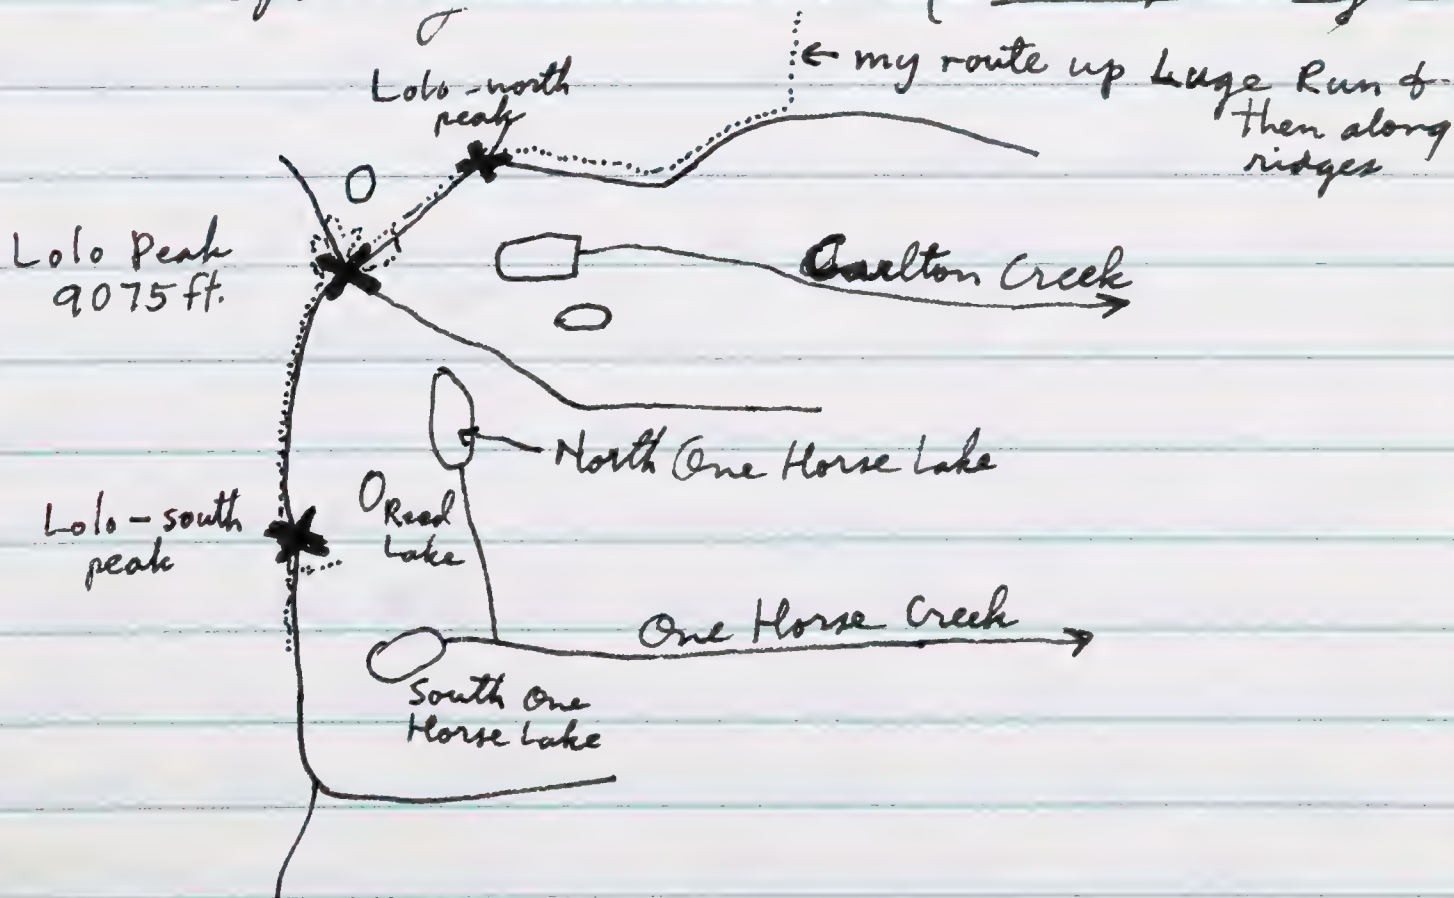 ← my route up Luge Run &
then along
ridges
Lolo-north
peak
Lolo Peak
9075 ft.
Carlton Creek
North One Horse Lake
Lolo-south
peak
Reed
Lake
One Horse Creek
South One
Horse Lake